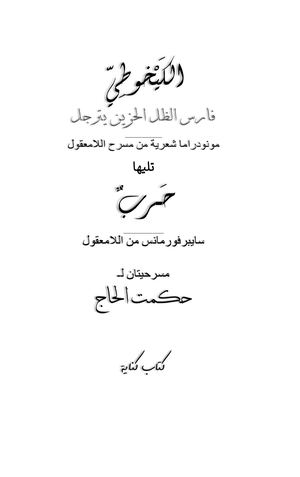 الكَيْخوطيّ
فارس الظل الحزين يترجل
مونودراما شعرية من مسرح اللامعقول
تليها
حَربٌ
سايبرفورمانس من اللامعقول
مسرحيتان لـ
حكمت الحاج
كتاب كناية